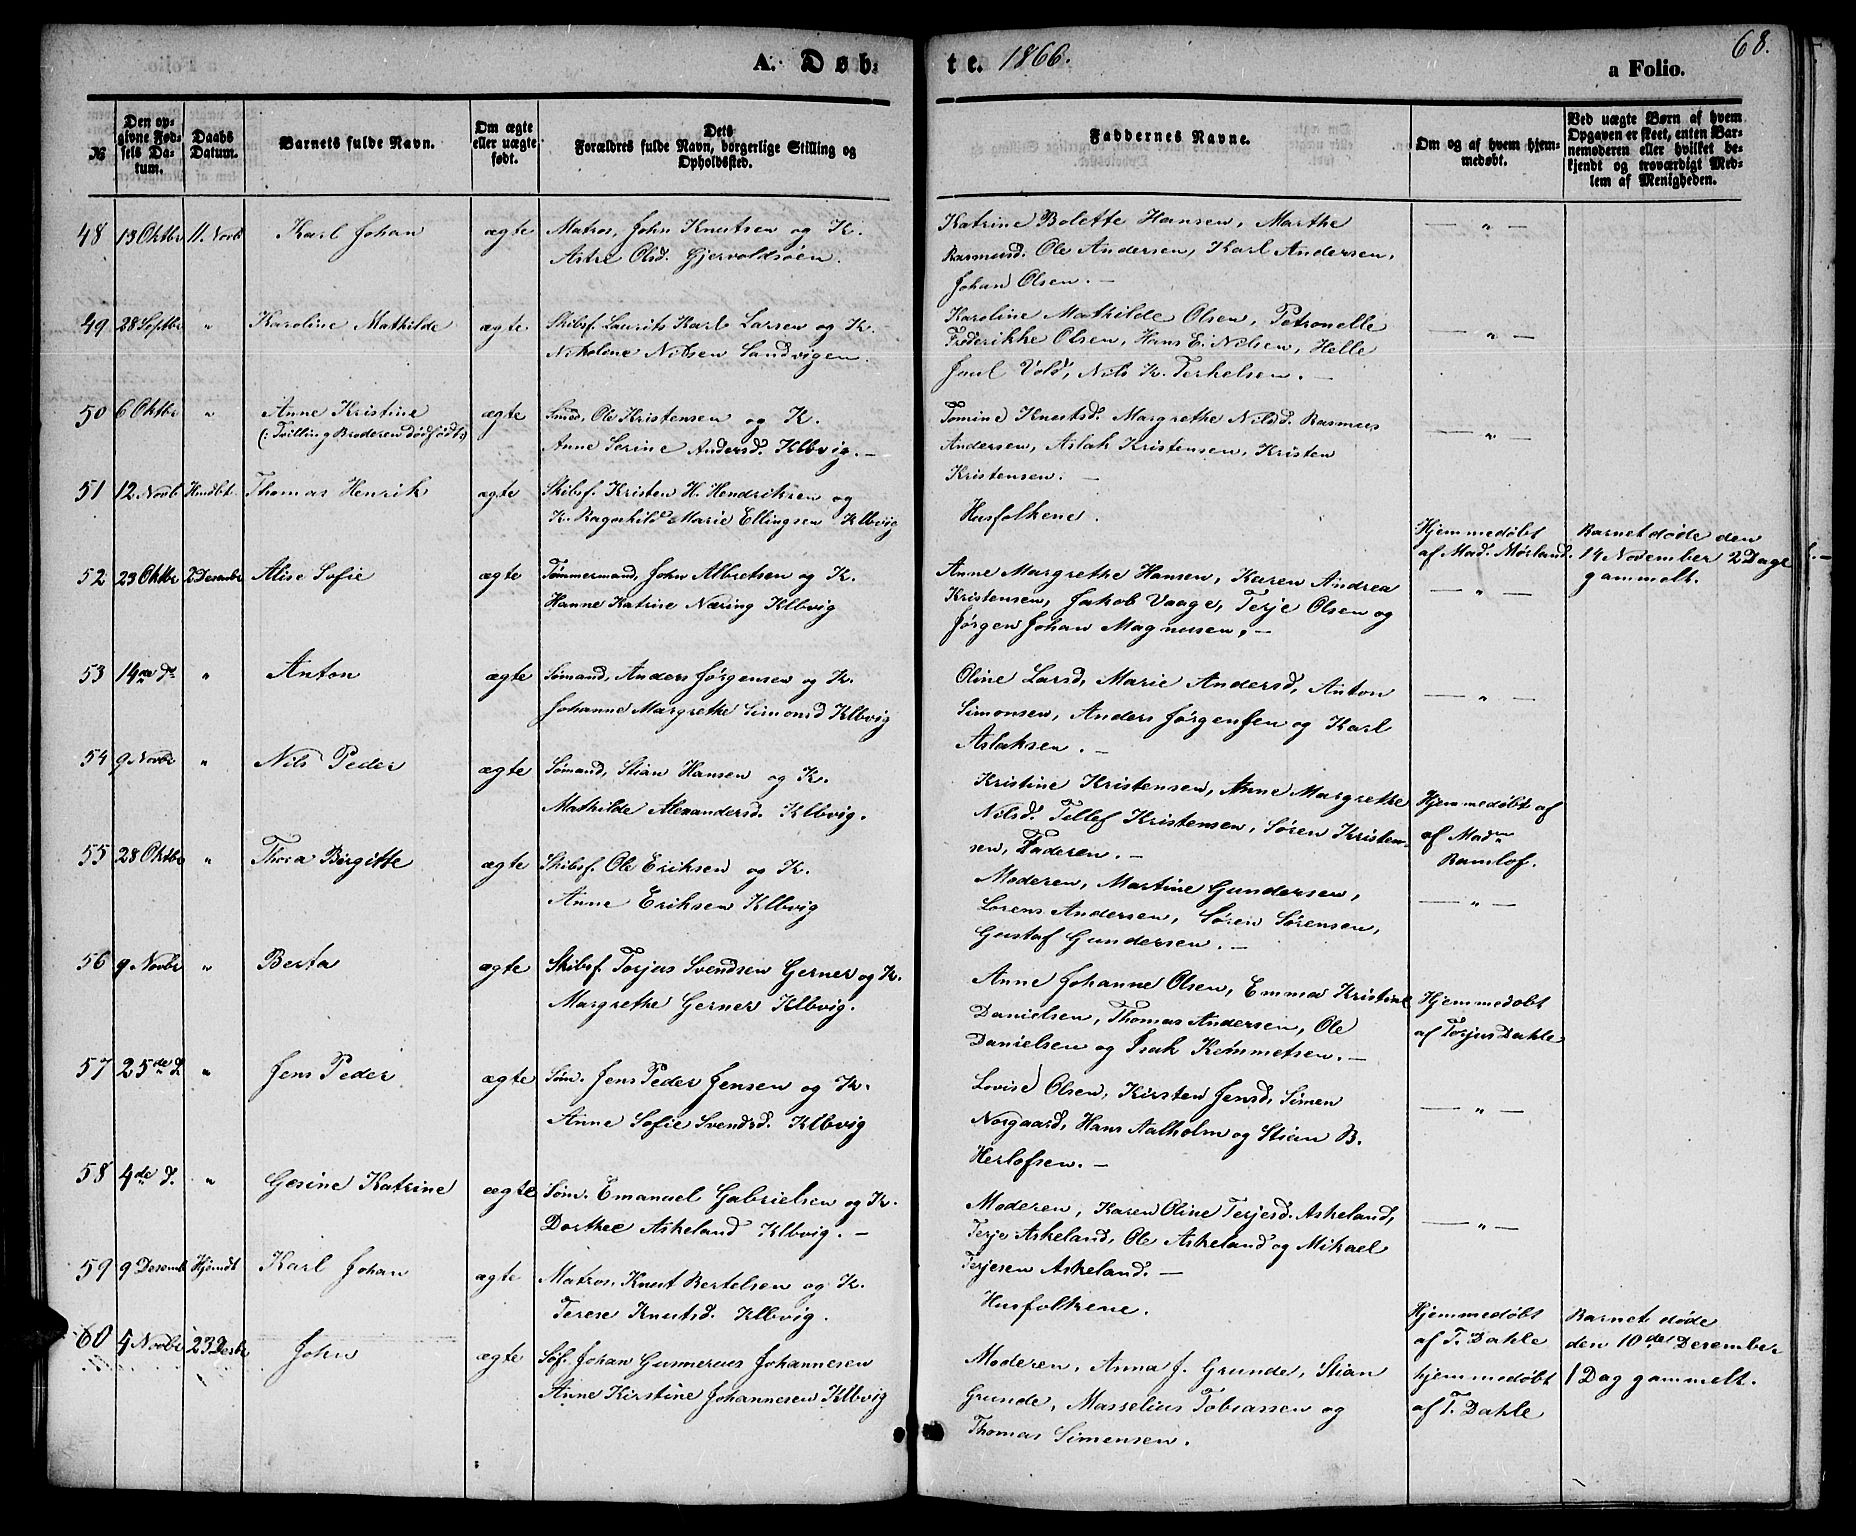 A. Døb-
te. 1866.
68.
a Folio.
№
Den op-
givne Fød-
sels Da-
tum.
Daabs
Datum.
Barnets fulde Navn.
Om ægte
eller uægte
født.
Dets
Forældres fulde Navn, borgerlige Stilling og
Opholdssted.
Faddernes Navne.
Om og af hvem hjem-
medøbt.
Ved uægte Børn af hvem
Opgaven er skeet, enten Bar-
nemoderen eller hvilket be-
kjendt og troværdigt Med-
lem af Menigheden.
48 13 Oktbr 11. Novb Karl Johan ægte Matros, John Knutsen og K.
Astre Olsd. Gjervoldsøen.
Katrine Bolette Hansen, Marthe
Rasmusd. Ole Andersen, Karl Andersen,
Johan Olsen. —
— „ —
49 28 Septbr „ Karoline Mathilde ægte Skibsf. Laurits Karl Larsen og K.
Nikoline Nilsen Sandvigen.
Karoline Mathilde Olsen, Petronelle
Frederikke Olsen, Hans E. Nelsen, Helle
Juul Vold, Nils K. Terkelsen. —
— „ —
50 6 Oktbr „ Anne Kristine ægte Smed, Ole Kristensen og K.
(: Tvilling Broderen dødfødt :)
Anne Serine Andersd. Klbvig. —
Tomine Knutsd. Margrethe Nilsd. Rasmus
Andersen, Aslak Kristensen, Kristen
Kristensen. —
— „ —
51 12 Novb Hmdbt. Thomas Henrik ægte Skibsf. Kristen H. Hendriksen og
K. Ragnhild Marie Ellingsen Klbvig
Husfolkene.
Hjemmedøbt
af Mad. Mørland.
Barnet døde den
14 November 2 Dage
gammelt.
52 23 Oktbr 2 Desembr Alise Sofie ægte Tømmermand, John Albretsen og K.
Hanne Katrine Næring Klbvig
Anne Margrethe Hansen, Karen Andrea
Kristensen, Jakob Vaage, Terje Olsen og
Jørgen Johan Magnusen. —
— „ —
53 14de d. „ Anton ægte Sømand, Anders Jørgensen og K.
Johanne Margrethe Simonsd Klbvig
Oline Larsd, Marie Andersd, Anton
Simonsen, Anders Jørgensen og Karl
Aslaksen. —
— „ —
54 9 Novbr „ Nils Peder ægte Sømand, Stian Hansen og K.
Mathilde Alexandersd. Klbvig.
Kristine Kristensen, Anne Margrethe
Nilsd. Tellef Kristensen, Søren Kristen-
sen, Faderen. —
Hjemmedøbt af
af Madm
Ramlof.
55 28 Oktbr „ Thora Birgitte ægte Skibsf. Ole Eriksen og K.
Anne Eriksen Klbvig
Moderen, Martine Gundersen,
Lorens Andersen, Søren Sørensen,
Gustaf Gundersen. —
— „ —
56 9 Novbr „ Berta ægte Skibsf. Torjus Svendsen Gerner og K.
Margrethe Gerner Klbvig.
Anne Johanne Olsen, Emma Kristine
Danielsen, Thomas Andersen, Ole
Danielsen og Isak Kemmetsen. —
Hjemmedøbt
af Torjus Dahle
57 25de d. „ Jens Peder ægte Søm. Jens Peder Jensen og K.
Anne Sofie Svendsd. Klbvig
Lovise Olsen, Kirsten Jensd, Simen
Norgaard, Hans Aalholm og Stian B.
Herlofsen. —
— „ —
58 4de d. „ Gesine Katrine ægte Søm. Emanuel Gabrielsen og K.
Dorthee Askeland Klbvig. —
Moderen, Karen Oline Terjesd. Askeland,
Terje Askeland, Ole Askeland og Mikael
Terjesen Askeland. —
— „ —
59 9 Desemb Hjmdt Karl Johan ægte Matros, Knut Bertelsen og K.
Terese Knutsd. Klbvig.
Husfolkene.
Hjemmedøbt
af T. Dahle
Barnet døde
den 10de Desember
1 Dag gammelt.
60 4 Novbr 23 Desbr John ægte Søf. Johan Gunnerius Johannesen
Anne Kirstine Johannesen Klbvig
Moderen, Anna J. Grunde, Stian
Grunde, Masselius Tobiassen og
Thomas Simensen.
hjemmedøbt
af T. Dahle